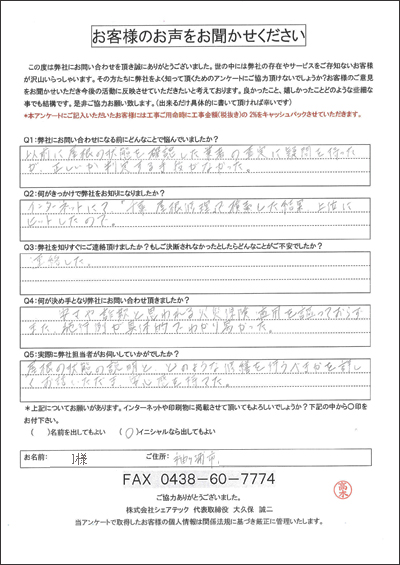 お客様のお声をお聞かせください
この度は弊社にお問い合わせを頂き誠にありがとうございました。世の中には弊社の存在やサービスをご存知ないお客様
が沢山いらっしゃいます。その方たちに弊社をよく知って頂くためのアンケートにご協力頂けないでしょうか?お客様のご意見
をお聞かせいただき今後の活動に反映させていただきたいと考えております。良かったこと、嬉しかったことどのような些細な
事でも結構です。是非ご協力お願い致します。（出来るだけ具体的に書いて頂ければ幸いです）
*本アンケートにご記入いただいたお客様には工事ご用命時に工事金額(税抜き)の 2%をキャッシュバックさせていただきます。
Q1:弊社にお問い合わせになる前にどんなことで悩んでいましたか？
以前に屋根の状態を確認した業者の事実に疑問を持った
が、正しいか判定する手段がなかった。
Q2:何がきっかけで弊社をお知りになりましたか？
インターネットにて 屋根修理で検索した結果 上位に
ヒットしたので。
Q3:弊社を知りすぐにご連絡頂けましたか？もしご決断されなかったとしたらどんなことがご不安でしたか？
連絡した。
Q4:何が決め手となり弊社にお問い合わせ頂きましたか？
と思われる火災保険 適用を謳っておらず
また 施工例が具体的でわかり易かった。
Q5:実際に弊社担当者がお伺いしていかがでしたか？
屋根の状態の説明と、どのような修繕を行うべきかを詳し
くお話いただき 安心感を持てた。
＊上記についてお願いがあります。インターネットや印刷物に掲載させて頂いてもよろしいでしょうか？下記の中から〇印を
お付下さい。
（　）名前を出してもよい　（〇）イニシャルなら出してもよい
お名前: I様 ご住所: 袖ヶ浦市
FAX 0438-60-7774
ご協力ありがとうございました。
株式会社シェアテック 代表取締役 大久保 誠二
当アンケートで取得したお客様の個人情報は関係法規に基づき厳正に管理いたします。